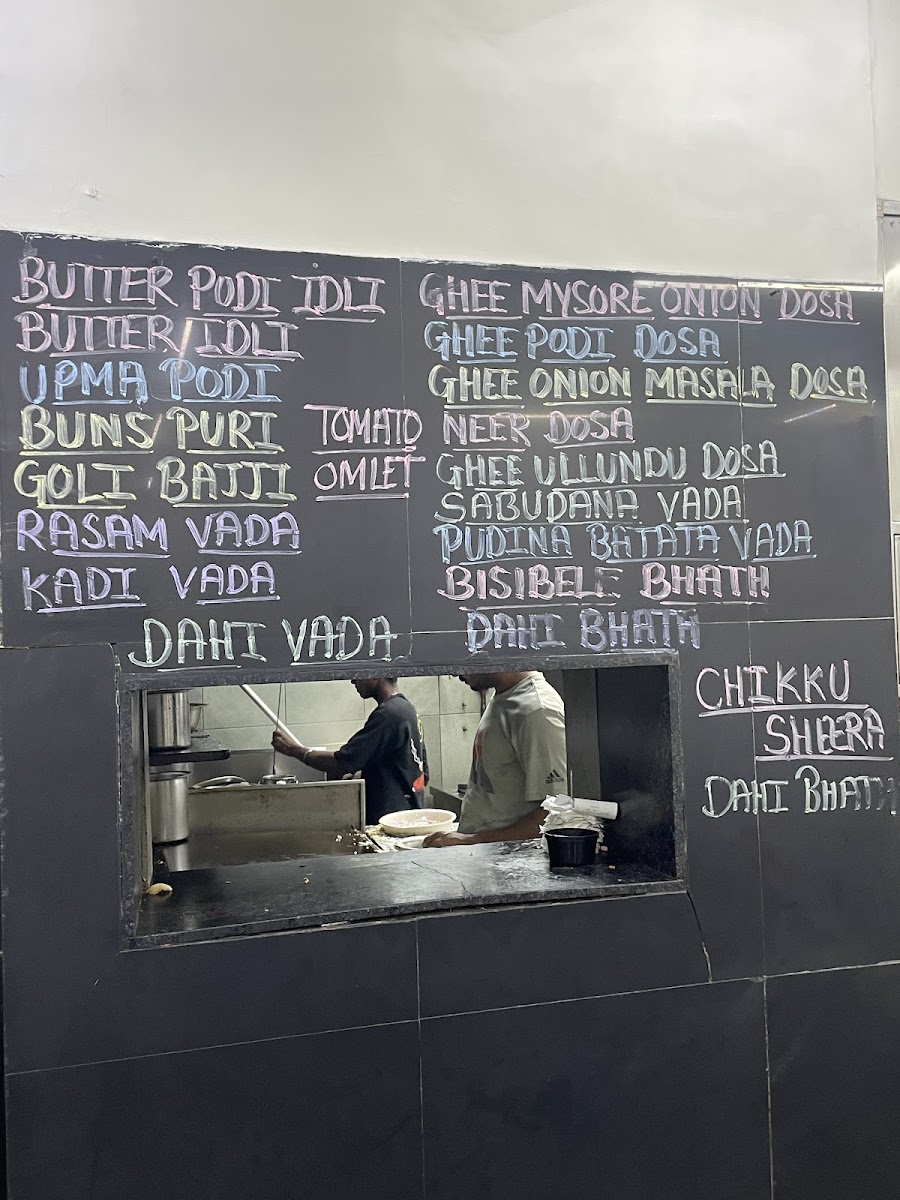 BUTTER PODI IDLI
BUTTER IDLI
UPMA PODI
BUNS PURI
GOLI BAJJI
RASAM VADA
KADI VADA
DAHI VADA
TOMATO
OMLET
GHEE MYSORE ONION DOSA
GHEE PODI DOSA
GHEE ONION MASALA DOSA
NEER DOSA
GHEE ULLUNDU DOSA
SABUDANA VADA
PUDINA BATATA VADA
BISIBELE BHATH
DAHI BHATH
CHIKKU
SHEERA
DAHI BHATH